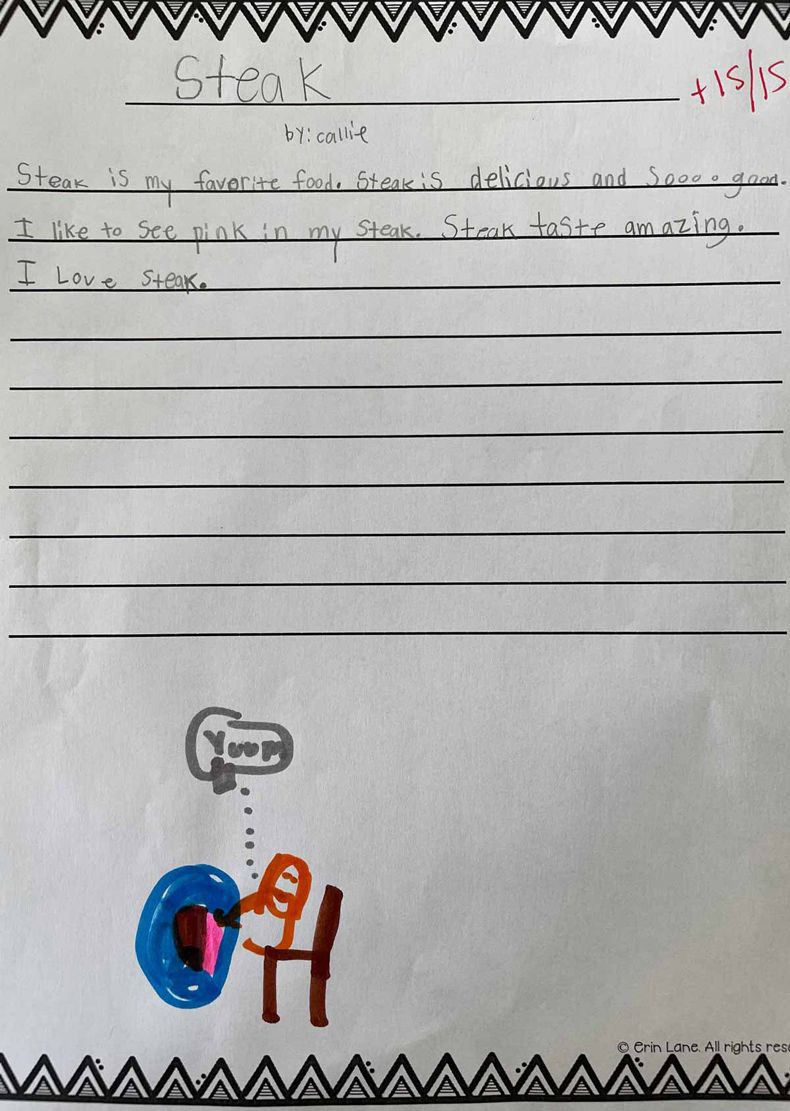 Steak
+15/15
by: callie
Steak is my favorite food. Steak is delicious and Soooo good.
I like to see pink in my steak. Steak taste amazing.
I Love Steak.
Yuum
© Erin Lane. All rights rese